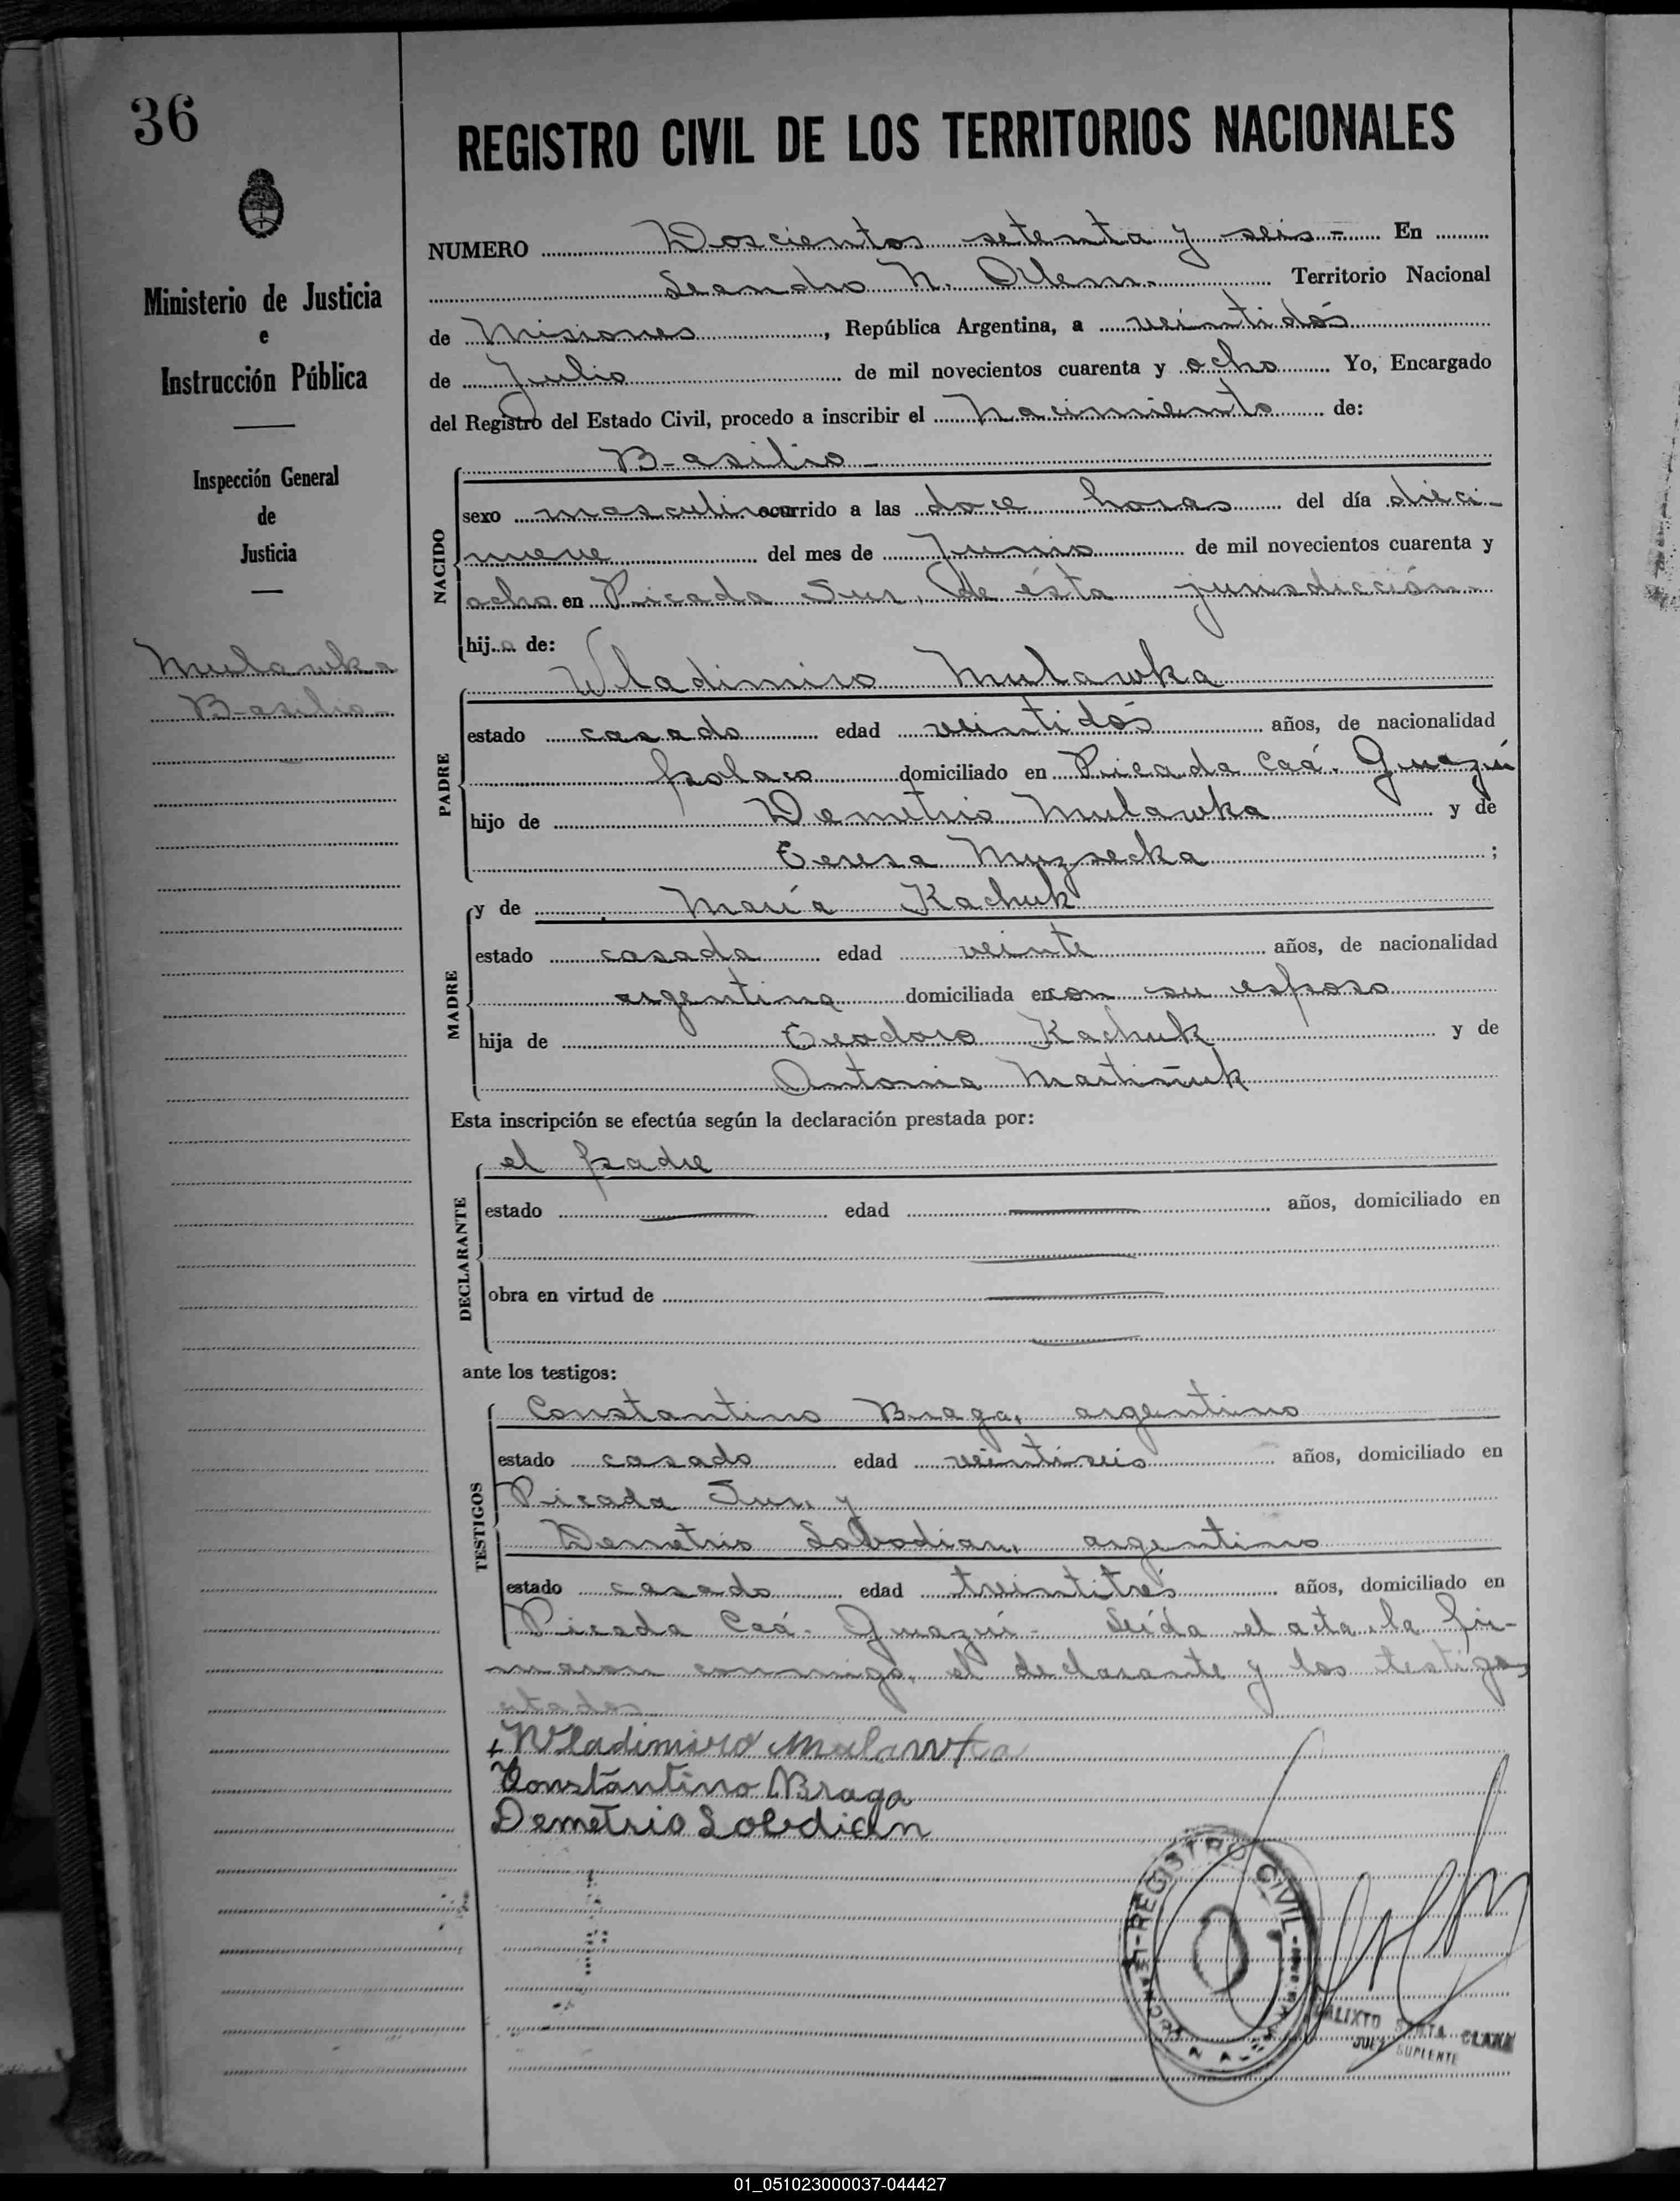 36
Ministerio de Justicia
e
Instrucción Pública
Inspección General
de
Justicia
Mulawka
Basilio
REGISTRO CIVIL DE LOS TERRITORIOS NACIONALES
NUMERO Doscientos setenta y seis - En
Leandro N. Alem. Territorio Nacional
de Misiones, República Argentina, a veintidós
de Julio de mil novecientos cuarenta y ocho Yo, Encargado
del Registro del Estado Civil, procedo a inscribir el nacimiento de:
NACIDO
Basilio
sexo masculino ocurrido a las doce horas del día dieci-
nueve del mes de Junio de mil novecientos cuarenta y
ocho en Picada Sur, de ésta jurisdicción
hijo de:
PADRE
Wladimiro Mulawka
estado casado edad veintidós años, de nacionalidad
polaco domiciliado en Picada Caá-Guazú
hijo de Demetrio Mulawka y de
Teresa Muzsecka ;
MADRE
y de María Kachuk
estado casada edad veinte años, de nacionalidad
argentina domiciliada en con su esposo
hija de Teodoro Kachuk y de
Antonia Martiniuk
Esta inscripción se efectúa según la declaración prestada por:
DECLARANTE
el padre
estado edad años, domiciliado en
obra en virtud de
ante los testigos:
TESTIGOS
Constantino Braga, argentino
estado casado edad veintiseis años, domiciliado en
Picada Sur, y
Demetrio Sobodian, argentino
estado casado edad treintitrés años, domiciliado en
Picada Caá-Guazú- Leída el acta, la fir-
maron conmigo, el declarante y los testigos
citados
+ Wladimiro Mulawka
Constantino Braga
Demetrio Lobodian
REGISTRO CIVIL
CALIXTO SANTA CLARA
JUEZ SUPLENTE
01_051023000037-044427